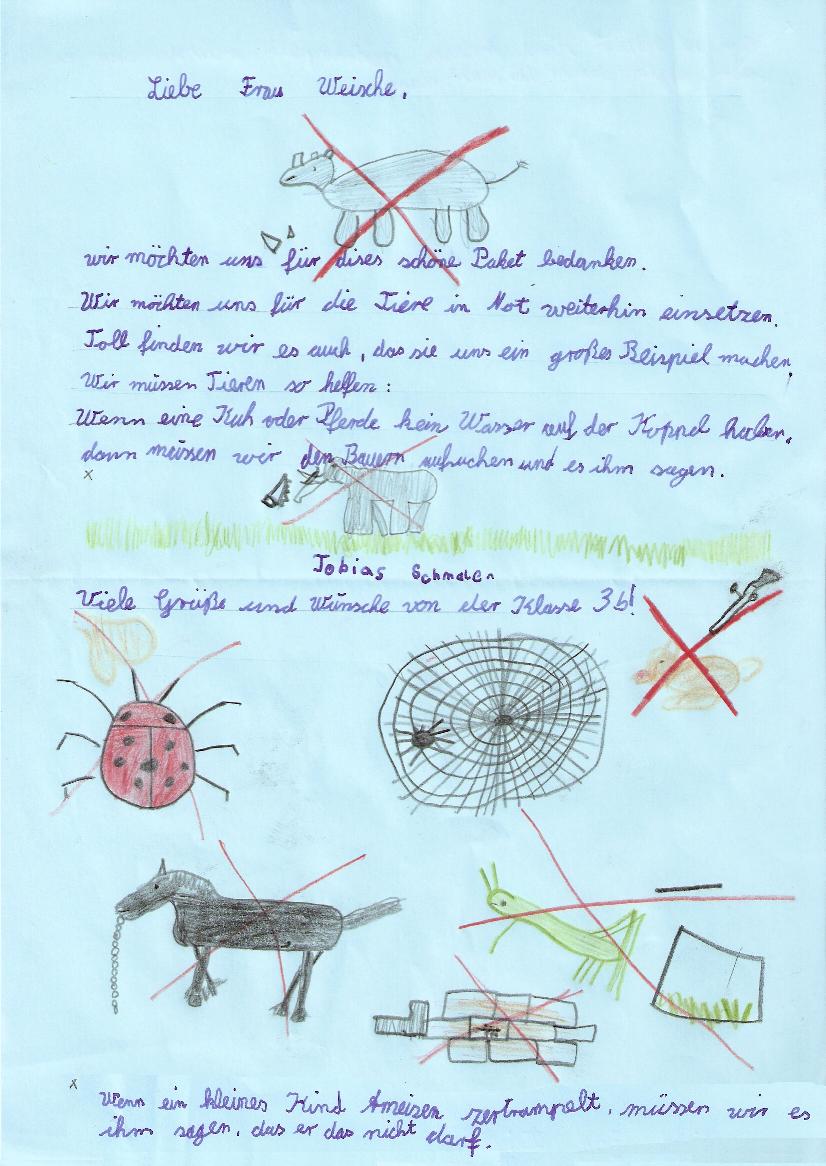 Liebe Frau Weische,
wir möchten uns für dises schöne Paket bedanken.
Wir möchten uns für die Tiere in Not weiterhin einsetzen.
Toll finden wir es auch, das sie uns ein großes Beispiel machen.
Wir müssen Tieren so helfen:
Wenn eine Kuh oder Pferde kein Wasser auf der Koppel haben,
dann müssen wir den Bauern aufsuchen und es ihm sagen.
x
Tobias Schmalen
Viele Grüße und Wünsche von der Klasse 3b!
x Wenn ein kleines Kind Ameisen zertrampelt, müssen wir es
ihm sagen, das er das nicht darf.